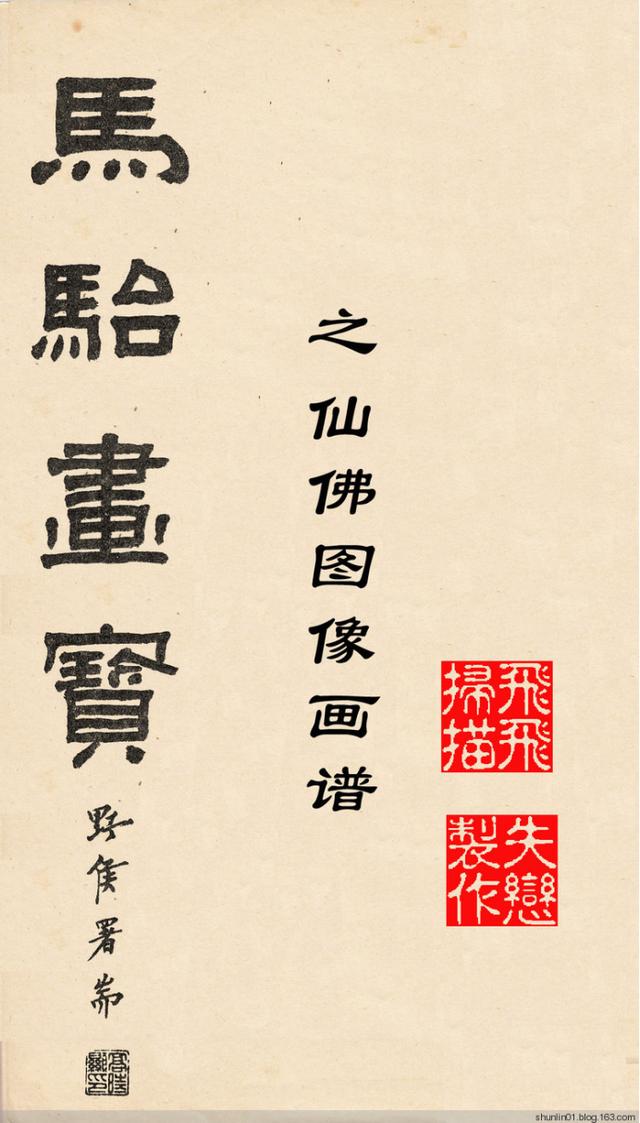 馬駘畫寶
野侯署耑
高時顯印
之仙佛图像画谱
飛飛掃描
失戀製作
shunlin01.blog.163.com